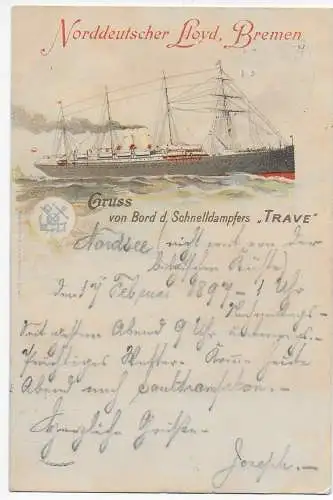 Norddeutscher Lloyd, Bremen
Gruss
von Bord d. Schnelldampfers „TRAVE“
Nordsee (nicht weit von der
Küste)
den 7 Februar 1897 – 1 Uhr
Seit gestern Abend 9 Uhr
Prächtiges Wetter. – Komme heute
Abend nach Southampton. –
Herzliche Grüße. –
Joseph. –